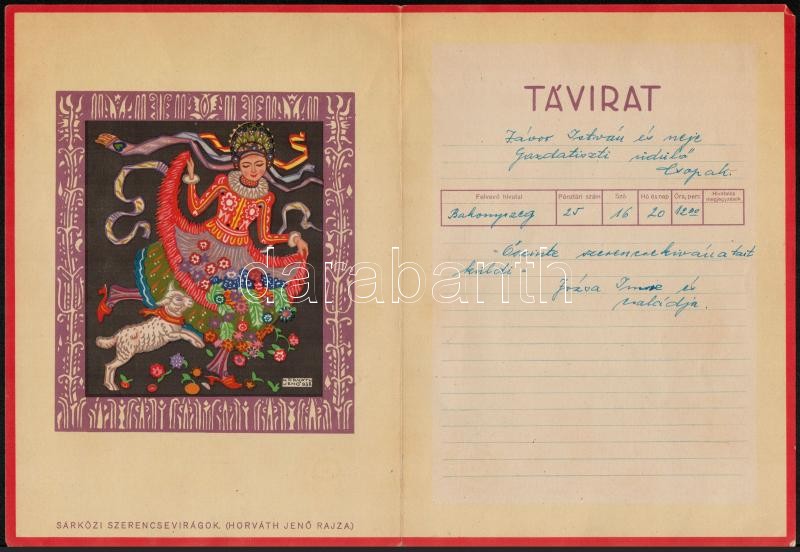 TÁVIRAT
Závor István és neje
Gazdatiszti üdülő
Csopak.
Felvevő hivatal Pénztári szám Szó Hó és nap Óra, perc Hivatalos megjegyzések
25 16 20 12 00
darabanth
Őszinte szerencsekivánatait
küldi -
Józsa Imre és
családja.
HORVÁTH
JENŐ 938
SÁRKÖZI SZERENCSEVIRÁGOK. (HORVÁTH JENŐ RAJZA)